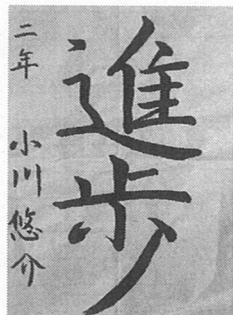 進歩
二年 小川悠介